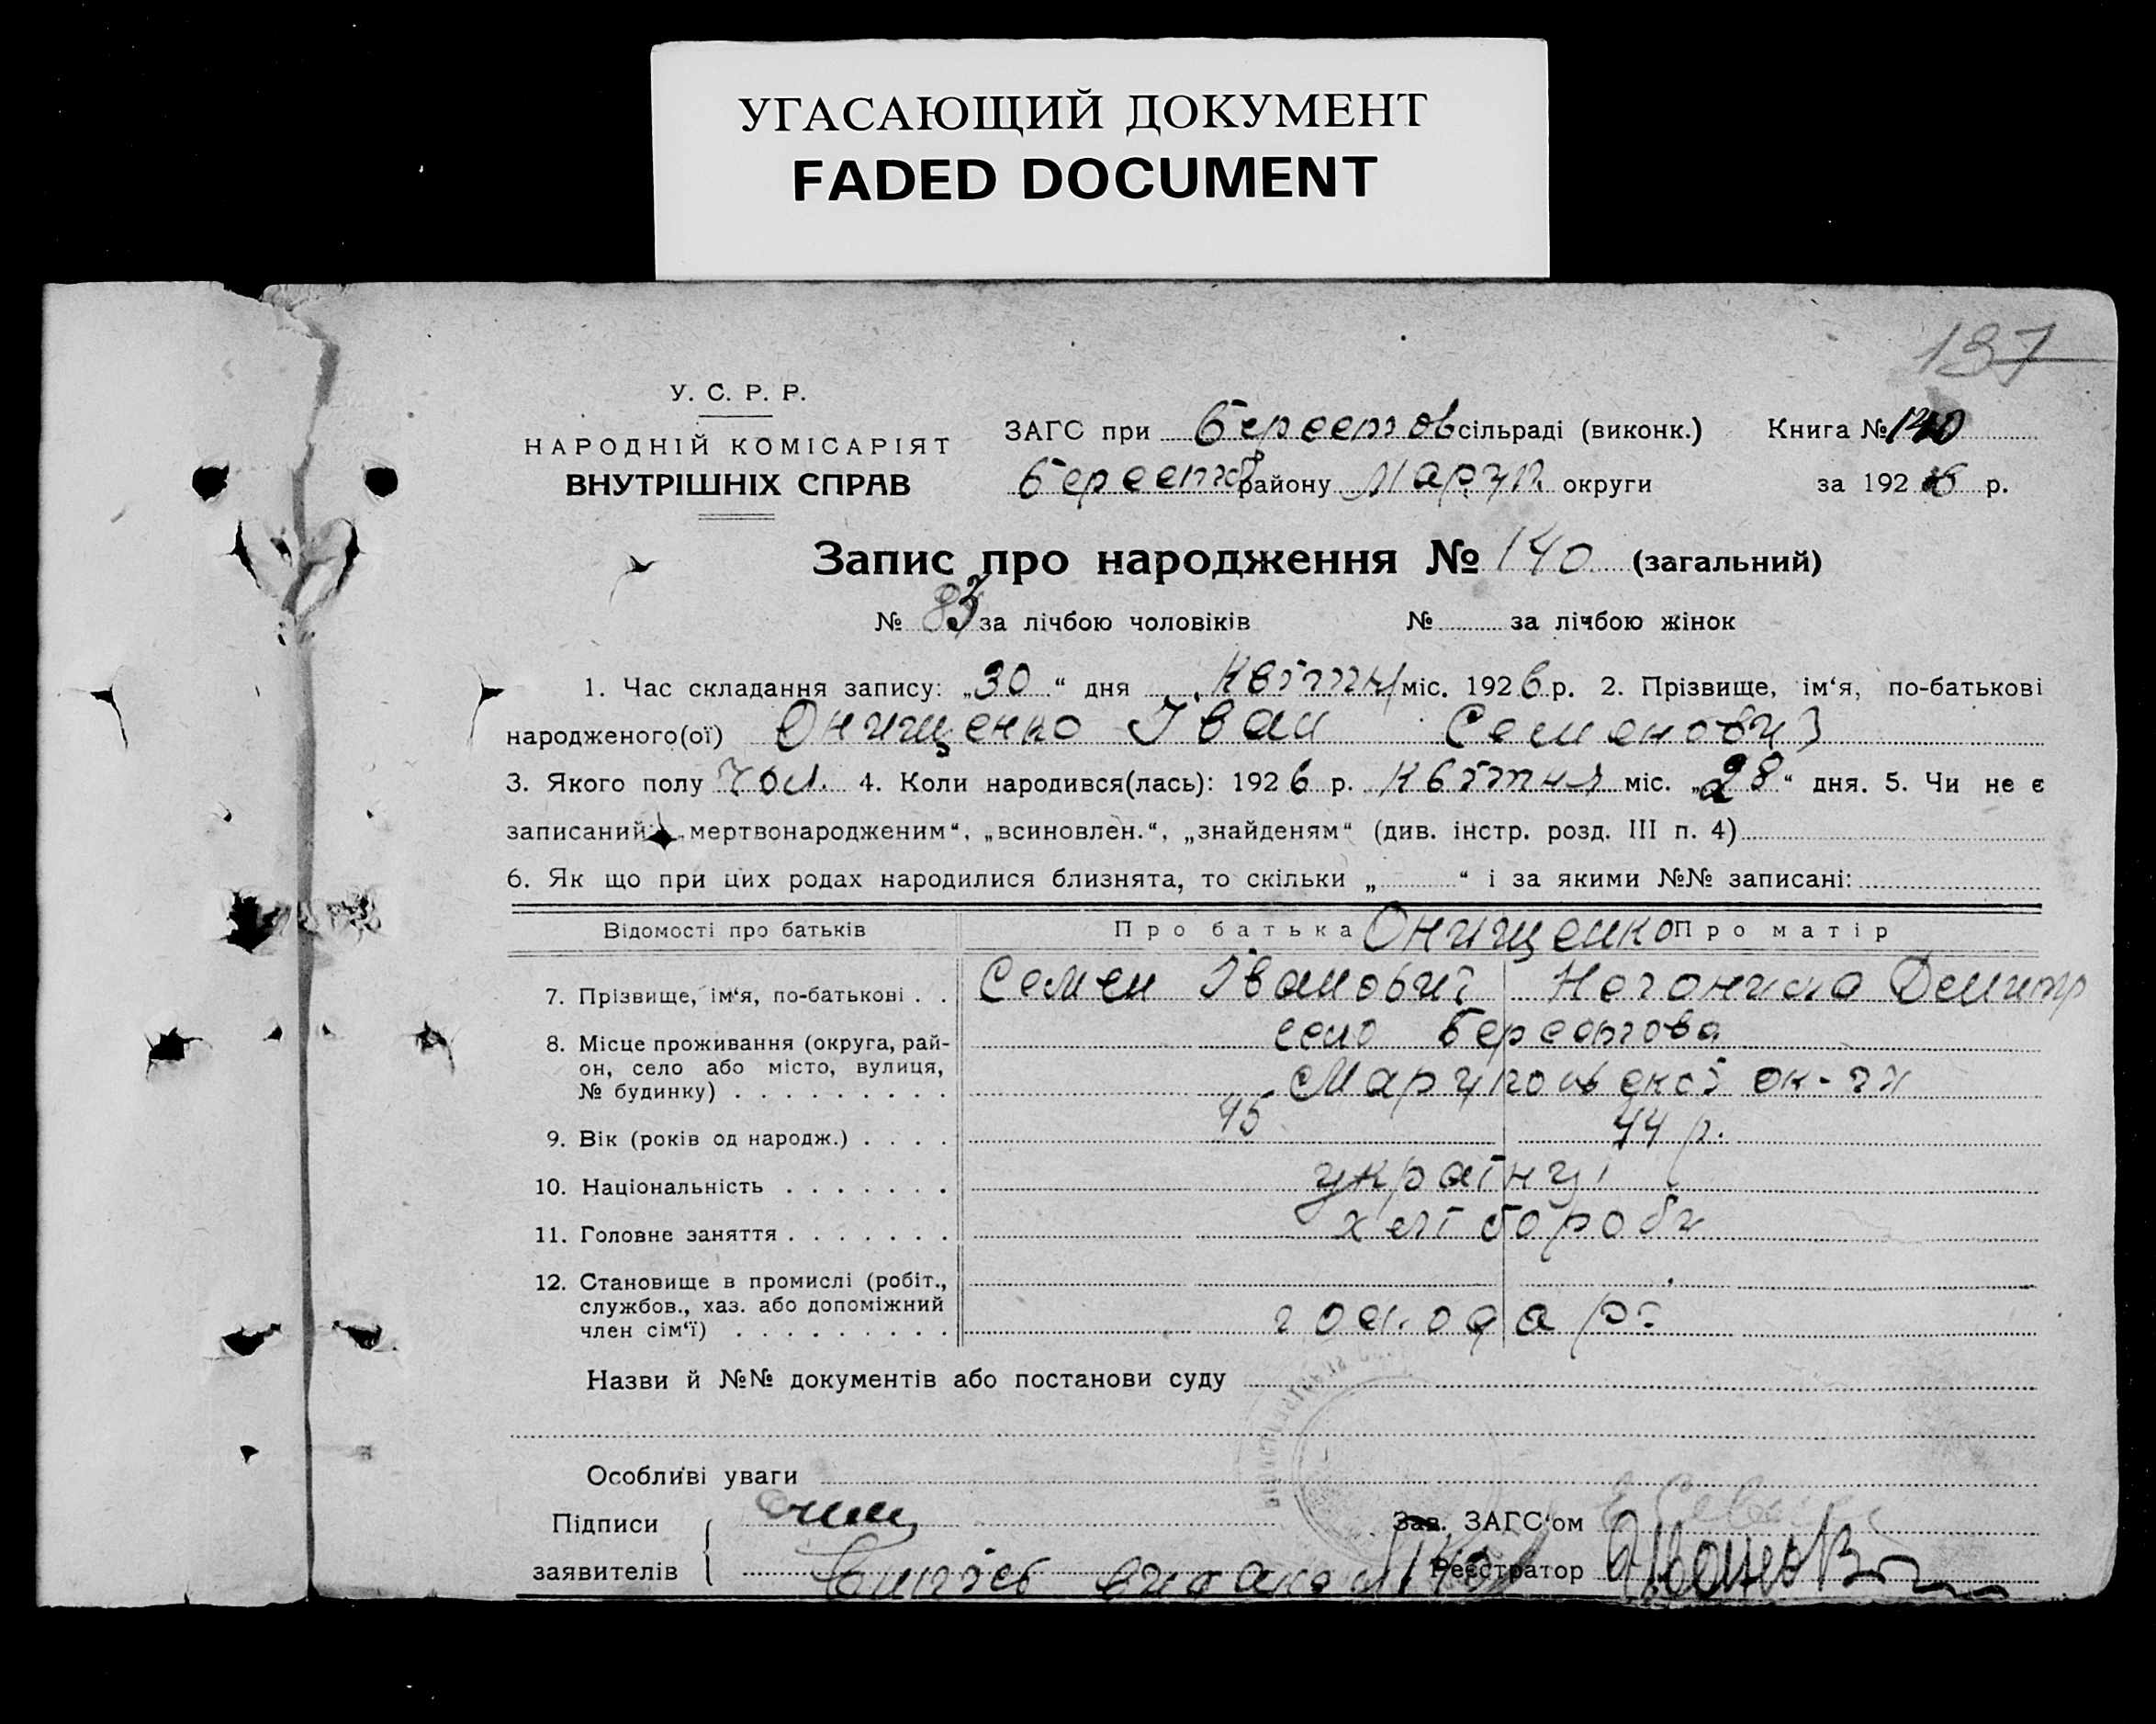 УГАСАЮЩИЙ ДОКУМЕНТ
FADED DOCUMENT
137
У. С. Р. Р.
НАРОДНІЙ КОМІСАРІЯТ
ВНУТРІШНІХ СПРАВ
ЗАГС при Берестов сільраді (виконк.) Книга № 140
Берестов району Маріуп округи за 1926 р.
Запис про народження № 140 (загальний)
№ 83 за лічбою чоловіків № за лічбою жінок
1. Час складання запису: „30“ дня Квітня міс. 1926 р. 2. Прізвище, ім‘я, по-батькові
народженого(ої) Онищенко Іван Семенович
3. Якого полу чол. 4. Коли народився(лась): 1926 р. Квітня міс. „28“ дня. 5. Чи не є
записаний: „мертвонародженим“, „всиновлен.“, „знайденям“ (див. інстр. розд. III п. 4)
6. Як що при цих родах народилися близнята, то скільки „ “ і за якими №№ записані:
Відомості про батьків Про батька Онищенко Про матір
7. Прізвище, ім‘я, по-батькові . . Семен Іванович Демитр
8. Місце проживання (округа, рай-
он, село або місто, вулиця,
№ будинку) . . . . . . . . .
село Берестова
Маріупольської ок-ги
9. Вік (років од народж.) . . . . 45 44 р.
10. Національність . . . . . . . українці
11. Головне заняття . . . . . . . хлібороби
12. Становище в промислі (робіт.,
службов., хаз. або допоміжний
член сім‘ї) . . . . . . . . . господарі
Назви й №№ документів або постанови суду
Особливі уваги
Підписи
заявителів
Зав. ЗАГС‘ом
Реєстратор